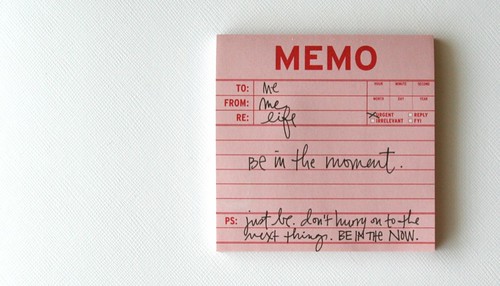 MEMO
TO: me
HOUR MINUTE SECOND
FROM: me
MONTH DAY YEAR
RE: life
URGENT REPLY
IRRELEVANT FYI
Be in the moment.
PS: just be. don't hurry on to the
next things. BE IN THE NOW.